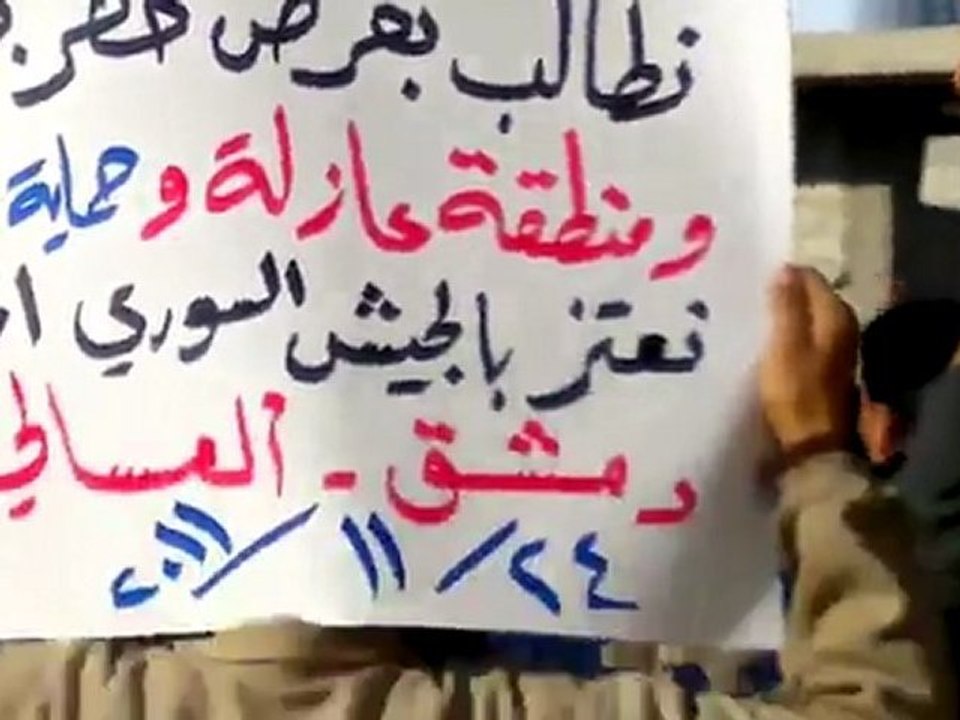 نطالب بفرض حظر
ومنطقة عازلة وحماية
نعتز بالجيش السوري
دمشق - العسالي
٢٤/١١/٢٠١١